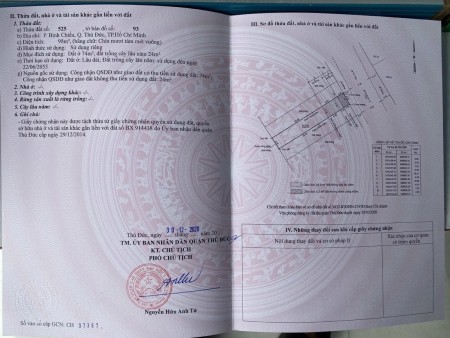 II. Thửa đất, nhà ở và tài sản khác gắn liền với đất
1. Thửa đất:
a) Thửa đất số: 525 tờ bản đồ số: 93
b) Địa chỉ: P. Bình Chiểu, Q. Thủ Đức, TP.Hồ Chí Minh
c) Diện tích: 98m², (bằng chữ: Chín mươi tám mét vuông)
d) Hình thức sử dụng: Sử dụng riêng
đ) Mục đích sử dụng: Đất ở 74m², đất trồng cây lâu năm 24m²
e) Thời hạn sử dụng: Đất ở: Lâu dài; Đất trồng cây lâu năm: sử dụng đến ngày
g) Nguồn gốc sử dụng: Công nhận QSDĐ như giao đất có thu tiền sử dụng đất: 74m²
Công nhận QSDĐ như giao đất không thu tiền sử dụng đất: 24m²
2. Nhà ở: -/-
3. Công trình xây dựng khác: -/-
4. Rừng sản xuất là rừng trồng: -/-
5. Cây lâu năm: -/-
6. Ghi chú:
- Giấy chứng nhận này được tách thửa từ giấy chứng nhận quyền sử dụng đất, quyền
sở hữu nhà ở và tài sản khác gắn liền với đất số BX 914418 do Ủy ban nhân dân quận
Thủ Đức cấp ngày 29/12/2014.
Thủ Đức, ngày 30-12-2020
TM. ỦY BAN NHÂN DÂN QUẬN THỦ ĐỨC
KT. CHỦ TỊCH
PHÓ CHỦ TỊCH
Nguyễn Hữu Anh Tứ
Số vào sổ cấp GCN: CH
III. Sơ đồ thửa đất, nhà ở và tài sản khác gắn liền với đất
IV. Những thay đổi sau khi cấp giấy chứng nhận
Nội dung thay đổi và cơ sở pháp lý
Xác nhận của cơ quan
có thẩm quyền